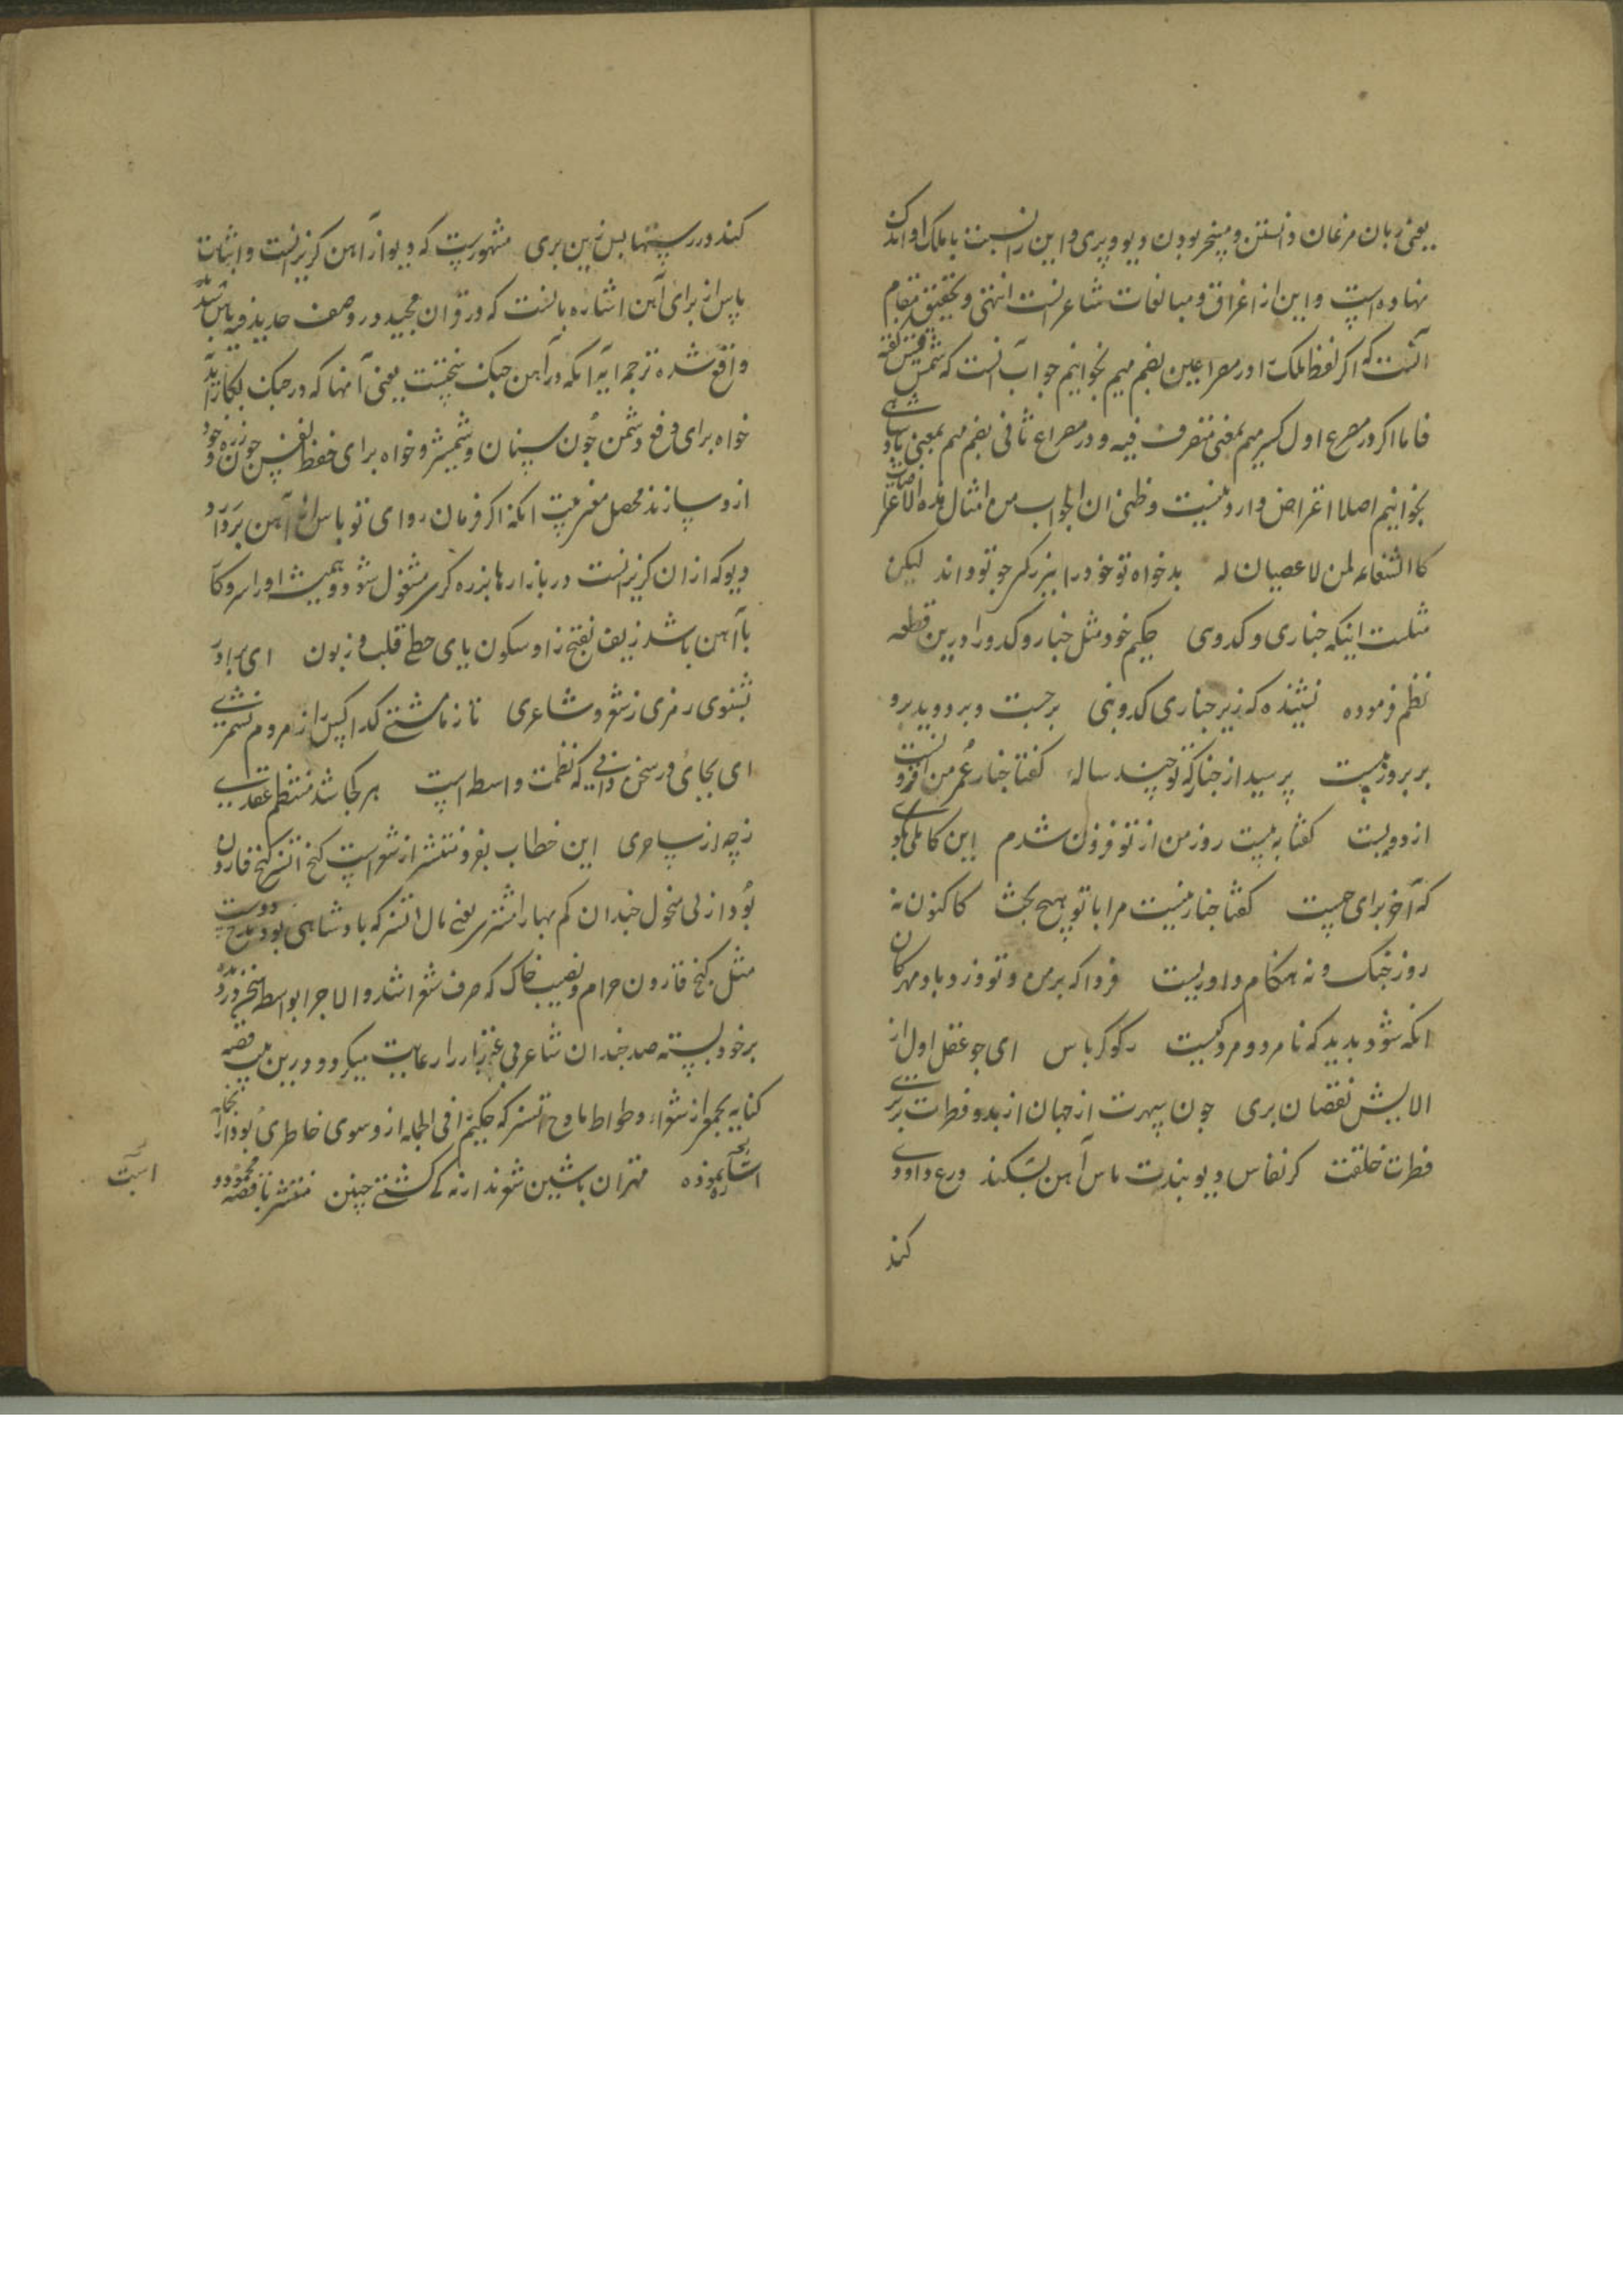 یعنی زبان مرغان دانستن و مسخر بودن دیو و پری و این را نسبت با ملک او اندک
نهاده است و این از اغراق و مبالغات شاعرانست انتهی و تحقیق مقام
آنست که اگر لفظ ملک در مصراعین بضم میم بخوانیم جواب آنست که شمس قیس گفته
فاما اگر در مصرع اول بکسر میم بمعنی متصرف فیه و در مصراع ثانی بضم میم بمعنی پادشاهی
بخوانیم اصلا اعتراض وارد نیست و ظنی ان الجواب من امثال هذه الاعتراضات
کالشفاعه لمن لا عصیان له بدخواه تو خود را ببزرگی چو تو داند لیکن
مثلست اینکه چناری و کدوی حکیم خود مثل چنار و کدو را درین قطعه
نظم فرموده نشنیده که زیر چناری کدوبنی برجست و بر دوید برو
بر بروز بیست پرسید از چنار که تو چند ساله گفتا چنار عمر من افزونست
از دویست گفتا به بیست روز من از تو فزون شدم این کاهلی بگوی
که آخر برای چیست گفتا چنار نیست مرا با تو هیچ بحث کاکنون نه
روز جنگ و نه هنگام داوریست فردا که بر من و تو وزد باد مهرکان
انکه شود بدید که نامرد و مرد کیست رکو کرباس ای چو عقل اول از
الایش نقصان بری چون سپهرت از جهان از بدو فطرت برتری
فطرت خلقت کر نفاس دیو بندت باس آهن بشکند درع داودی
کند
کند در رستها بس آهن بری مشهورست که دیو از آهن کریزانست و اثبات
باس از برای آهن اشاره بآنست که در قرآن مجید در وصف حدید فیه باس شدید
واقع شده ترجمه ایه آنکه در آهن جنگ سختست یعنی آنها که در جنگ بکار آید
خواه برای دفع دشمن چون سنان و شمشیر و خواه برای حفظ نفس چون زره و خود
ازو سازند محصل معنی بیت انکه اکر فرمان روای تو باس از آهن بردارد
دیو که از آن کریزانست در بازارها بزره کری مشغول شود و همیشه او را سر و کار
با آهن باشد زیف بفتح زا و سکون یای حطی قلب و زبون ای برادر
بشنوی رمزی ز شعر و شاعری تا ز ما مشتی کدا کس را ز مردم نشمری
ای بجای در سخن دانی که نظمت واسطه است هر کجا شد منتظم عقدی
ز چه از ساحری این خطاب بفرومنتشر از شعر است کنج اتسز کنج قارون
بود از نی سخول چندان کم بها را مشتری یعنی مال اتسز که پادشاهی بود مدح دوست
مثل کنج قارون حرام و نصیب خاک که صرف شعرا شد والا جرا بواسطه
بر خود بسته صد چندان شاعر بی را رعایت میکرد و درین بیت قصه
کنایه بجمعی از شعراء وطواط مادح اتسز که حکیم را فی الجمله ازو سوی خاطری بود
اشاره نموده مهتران باشین شوند ارنه که کشتی چنین منتشر با قصه محمود
است